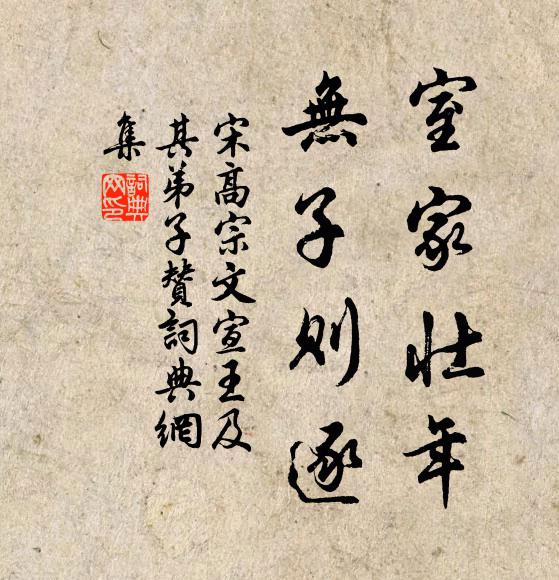 室家壯年
無子則逐
宋高宗文宣王及
其弟子贊詞典網
集
詞典
网印